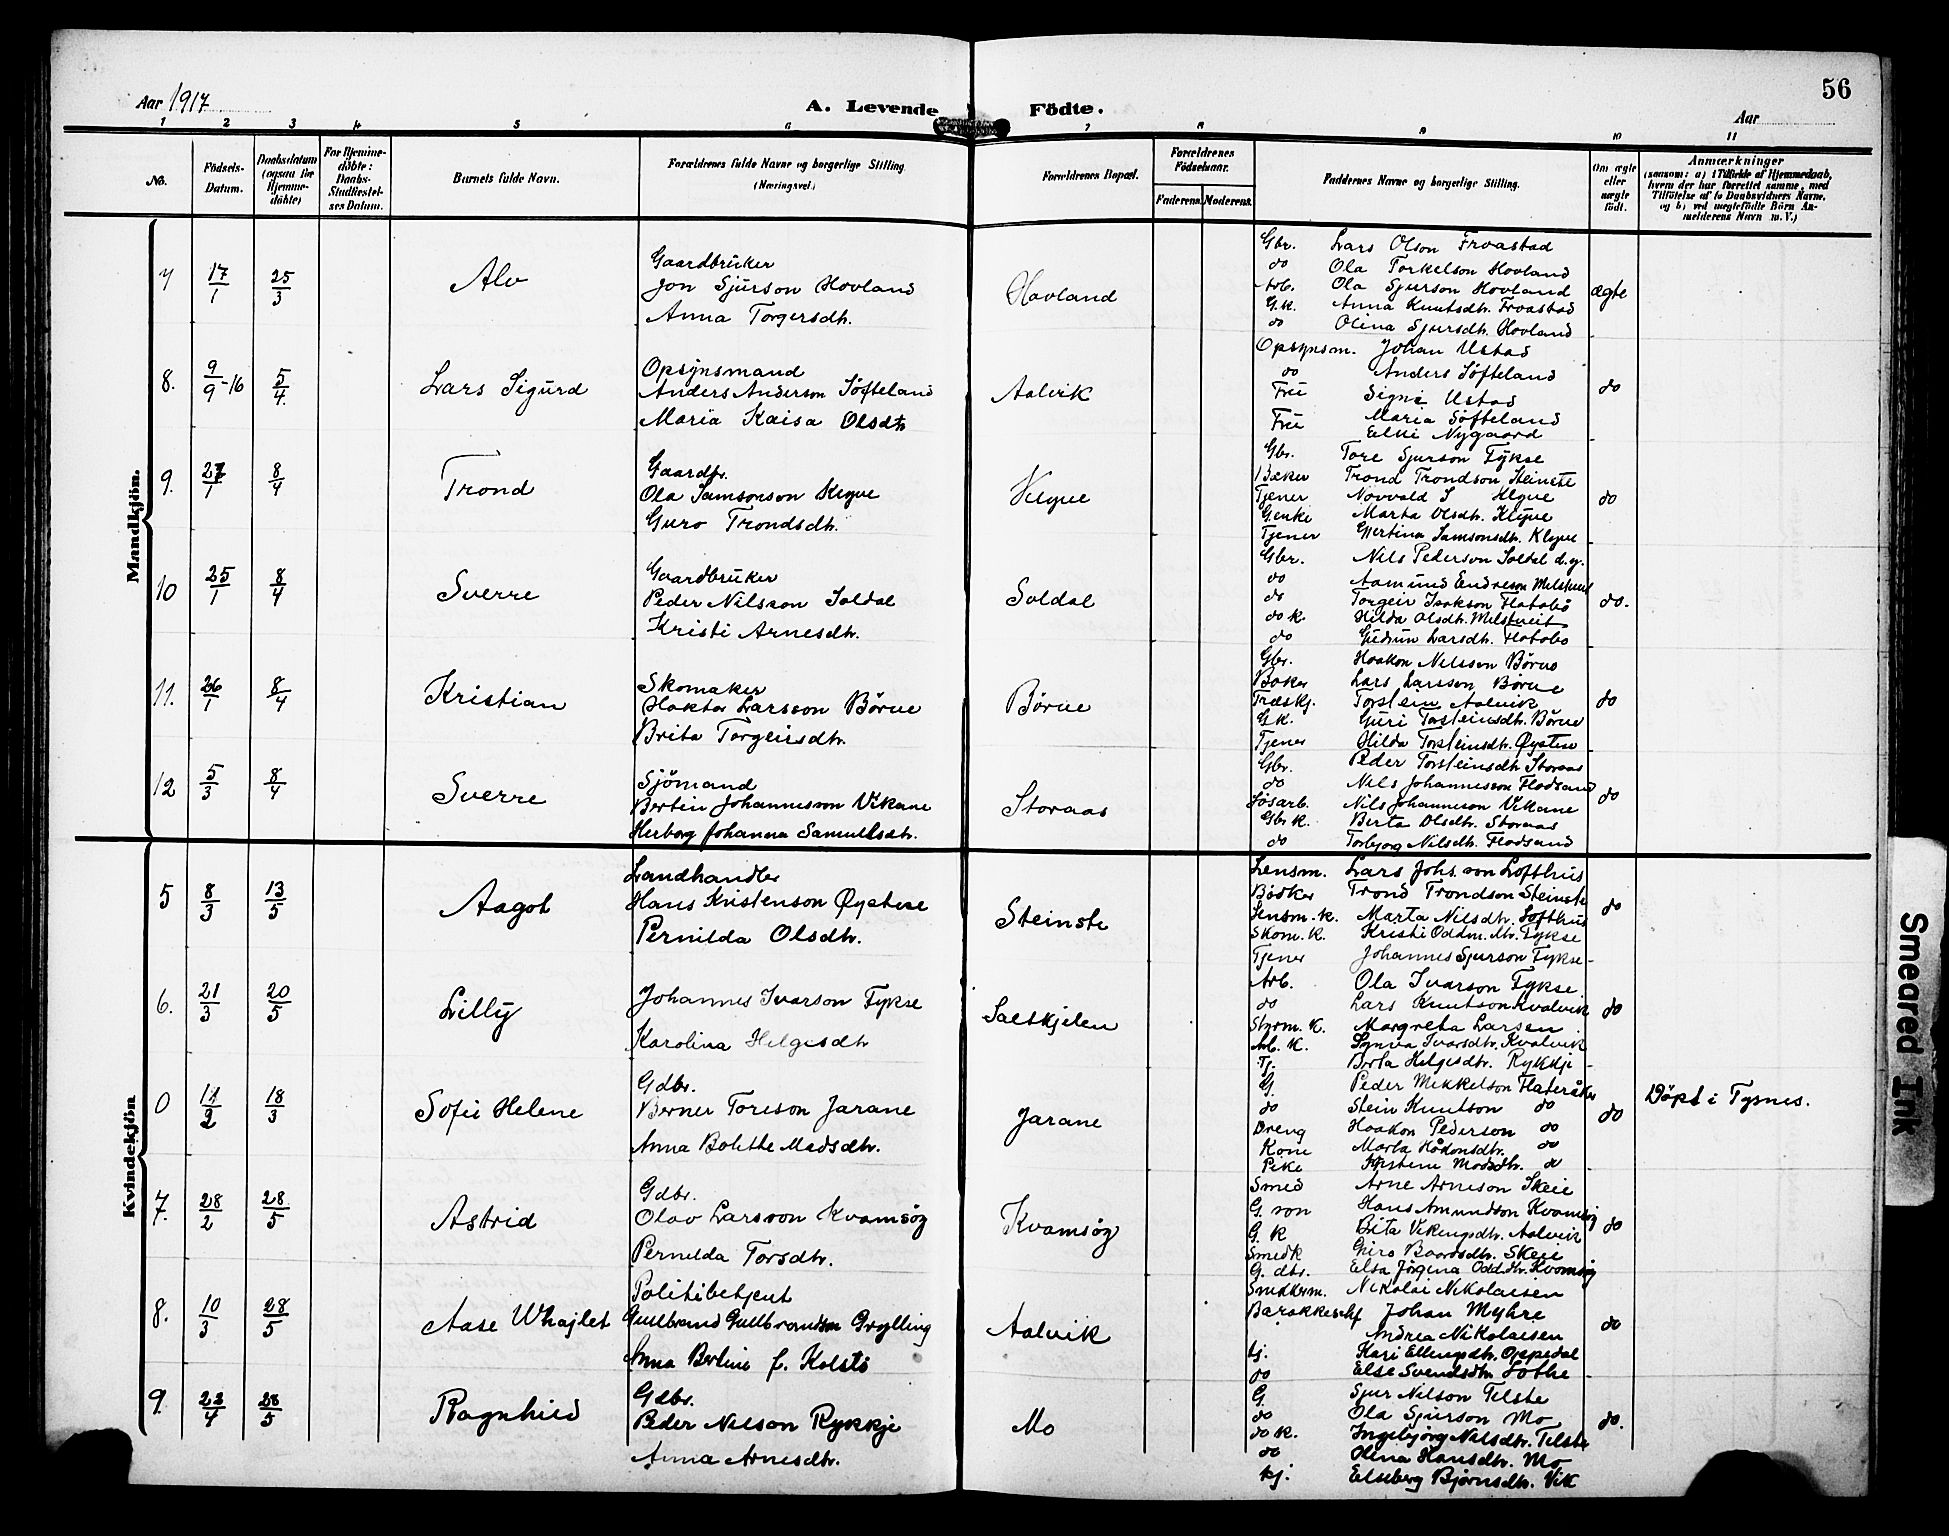 56
Aar 1917
A. Levende Födte.
Aar
1 2 3 4 5 6 7 8 9 10 11
No.
Födsels-Datum.
Daabsdatum (ogsaa for Hjemme-döbte)
For Hjemme-döbte: Daabs-Stadfæstel-ses Datum.
Barnets fulde Navn.
Forældrenes fulde Navne og borgerlige Stilling (Næringsvei.)
Forældrenes Bopæl.
Forældrenes Födselsaar.
Faderens. Moderens.
Faddernes Navne og borgerlige Stilling.
Om ægte eller uægte födt.
Anmærkninger
(saasom: a) i Tilfælde af Hjemmedaab,
hvem der har forrettet samme, med
Tilföielse af to Daabsvidners Navne,
og b) ved uægtefödte Börn An-
melderens Navn m. V.)
Mandkjön.
7 17/1 25/3 Alv
Gaardbruker
Jon Sjurson Hovland
Anna Torgersdh.
Hovland
Gbr. Lars Olson Froastad
do Ola Torkelson Hovland
Arb. Ola Sjurson Hovland
G.k. Anna Knutsdh. Froastad
do Olina Sjursdh. Hovland
ægte
8. 9/9-16 5/4. Lars Sigurd
Opsynsmand
Anders Anderson Söfteland
Maria Kaisa Olsdt
Aalvik
Opsynsm. Johan Ustad
do Anders Söfteland
Frü Signe Ustad
Maria Söfteland
Frü Elni Nygaard
do
9. 27/1 8/4 Trond
Gaardbr.
Ola Samsonson Klyve
Guro Trondsdh.
Klyve
Gbr. Tore Sjurson Fykse
Bæker Trond Trondson Steinstø
Tjener Norvald S Klyve
G.enke Marta Olsdh. Klyve
Tjener Gjertina Samsonsdh. Klyve
do
10 25/1 8/4 Sverre
Gaardbruker
Peder Nilsson Soldal
Kristi Arnesdh.
Soldal
Gbr. Nils Pederson Soldal d.y.
do Aamund Endreson
do Torgeir Isakson Flatabö
do k. Hilda Olsdh. Melstveit
do Gudrun Larsdh. Flatabö
do.
11. 26/1 8/4 Kristian
Skomaker
Haktor Larsson Börve
Brita Torgeirsdtr.
Börve
Gbr. Haakon Nilsson Börve
Baker Lars Larsson Börve
Træskj. Torstein Aalvik
G.k. Guri Torsteinsdh. Börve
Tjener Hilda Torsteinsdh. Øystese
do
12 5/3 8/4 Sverre
Sjömand
Bertin Johannesson Vikane
Herborg Johanna Samuelsdtr.
Storaas
Gbr. Peder Torsteinsdh Storaas
do Nils Johannesson Flodsand
Løsarb. Nils Johanneson Vikane
Gbr k. Berta Olsdtr. Storaas
do Torbjorg Nilsdh. Flodsand
do
Kvindekjön
5 8/3 13/5 Aagot
Landhandler
Hans Kristenson Øystese
Pernilda Olsdtr.
Steinstø
Lensm. Lars Johs. son Lofthus
Bödker Trond Trondson Steinstø
Lensm.-k. Marta Nilsdtr. Lofthus
Skom. k. Kristi Oddm. dtr. Fykse
Tjener Johannes Sjurson Fykse
do
6. 21/3 20/5 Lilly
Johannes Ivarson Fykse
Karolina Helgesdtr
Saltkjelen
Arb. Ola Ivarson Fykse
do Lars Knutson Kvalvik
Styrm. K. Margreta Larsen
Arb. K. Synva Ivarsdtr. Kvalvik
Tj. Berta Helgesdtr. Rykkje
do
0 14/2 18/3 Sofie Helene
Gdbr.
Berner Toreson Jarane
Anna Bolethe Madsdtr.
Jarane
G. Peder Mikkelson Flateråker
do Stein Knutson do
Dreng Haakon Pederson do
Kone Marta Håkonsdtr. do
Pike Kristine Madsdtr. do
do
Döpt i Tysnes.
7. 28/2 28/5 Astrid
Gdbr.
Olav Larsson Kvamsöy
Pernilda Torsdtr.
Kvamsöy
Smed Arne Arneson Skeie
G. son Hans Amundson Kvamsöy
G. k Brita Vikingsdtr. Aalvik
Smedk Guro Baardsdtr. Skeie
G. dtr. Elsa Jörgina Odd.dtr. Kvamsöy
do
8. 10/3 28/5 Aase Whajlet
Politibetjent
Gullbrand Gullbrandson Grylling
Anna Berline f. Kolstö
Aalvik
Smedkem. Nikolai Nikolaisen
Barakkeschf Johan Myhre
Andrea Nikolaisen
tj. Kari Ellingsdtr. Oppedal
do Else Svendsdtr Lothe
do
9. 22/4 28/5 Ragnhild
Gdbr.
Peder Nilson Rykkje
Anna Arnesdtr.
Mo
G. Sjur Nilson Telste
do Ola Sjurson Mo
do k. Ingebjörg Nilsdtr. Telste
do Olina Hansdtr. Mo
tj. Elseberg Bjørnsdtr. Vik
do.
Smeared Ink